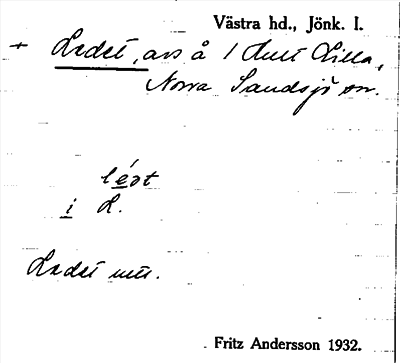 Västra hd., Jönk. l.
+ Ledet, avs å 1 Hult Lilla,
Norra Sandsjö sn.
i L.
Ledet
Fritz Andersson 1932.